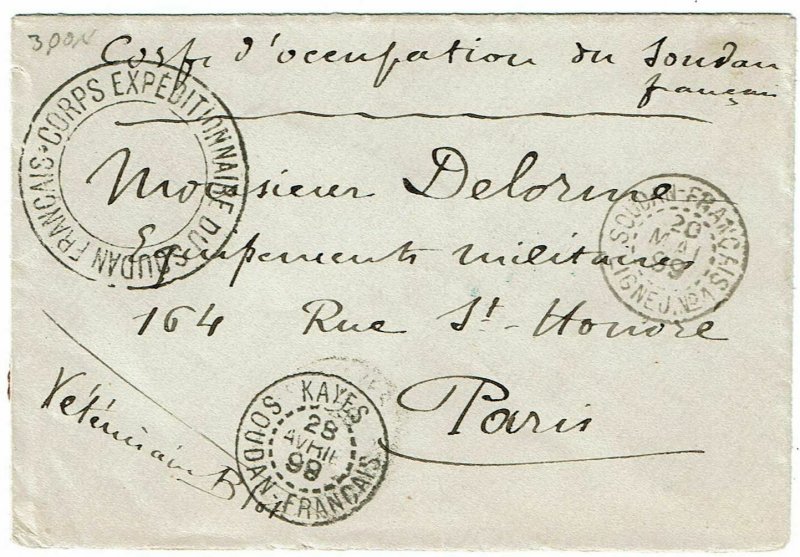 Corps d'occupation du Soudan
français
CORPS EXPÉDITIONNAIRE DU SOUDAN FRANÇAIS
Monsieur Delorme
Equipements militaires
164 Rue St-Honoré
Paris
SOUDAN-FRANÇAIS
20
MAI
98
LIGNE J. No 1
KAYES
28
AVRIL
98
SOUDAN-FRANÇAIS
Vétérinaire